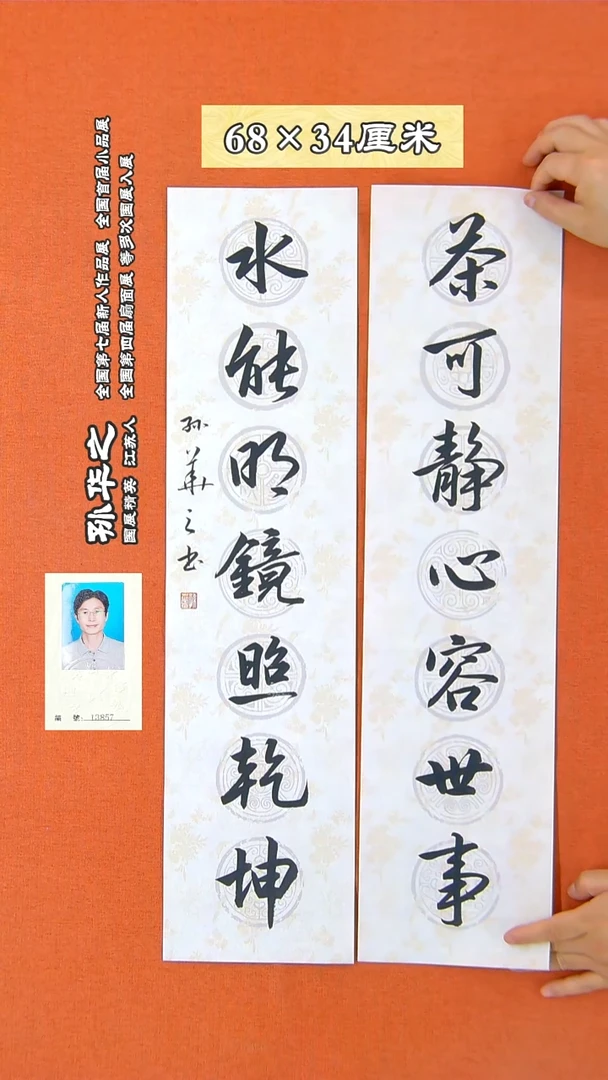 68×34厘米
茶可静心容世事
水能明鏡照乾坤
孙華之书
孙华之
国展精英 江苏人
全国第七届新人作品展 全国首届小品展
全国第四届扇面展 等多次国展入展
編 號: 13857